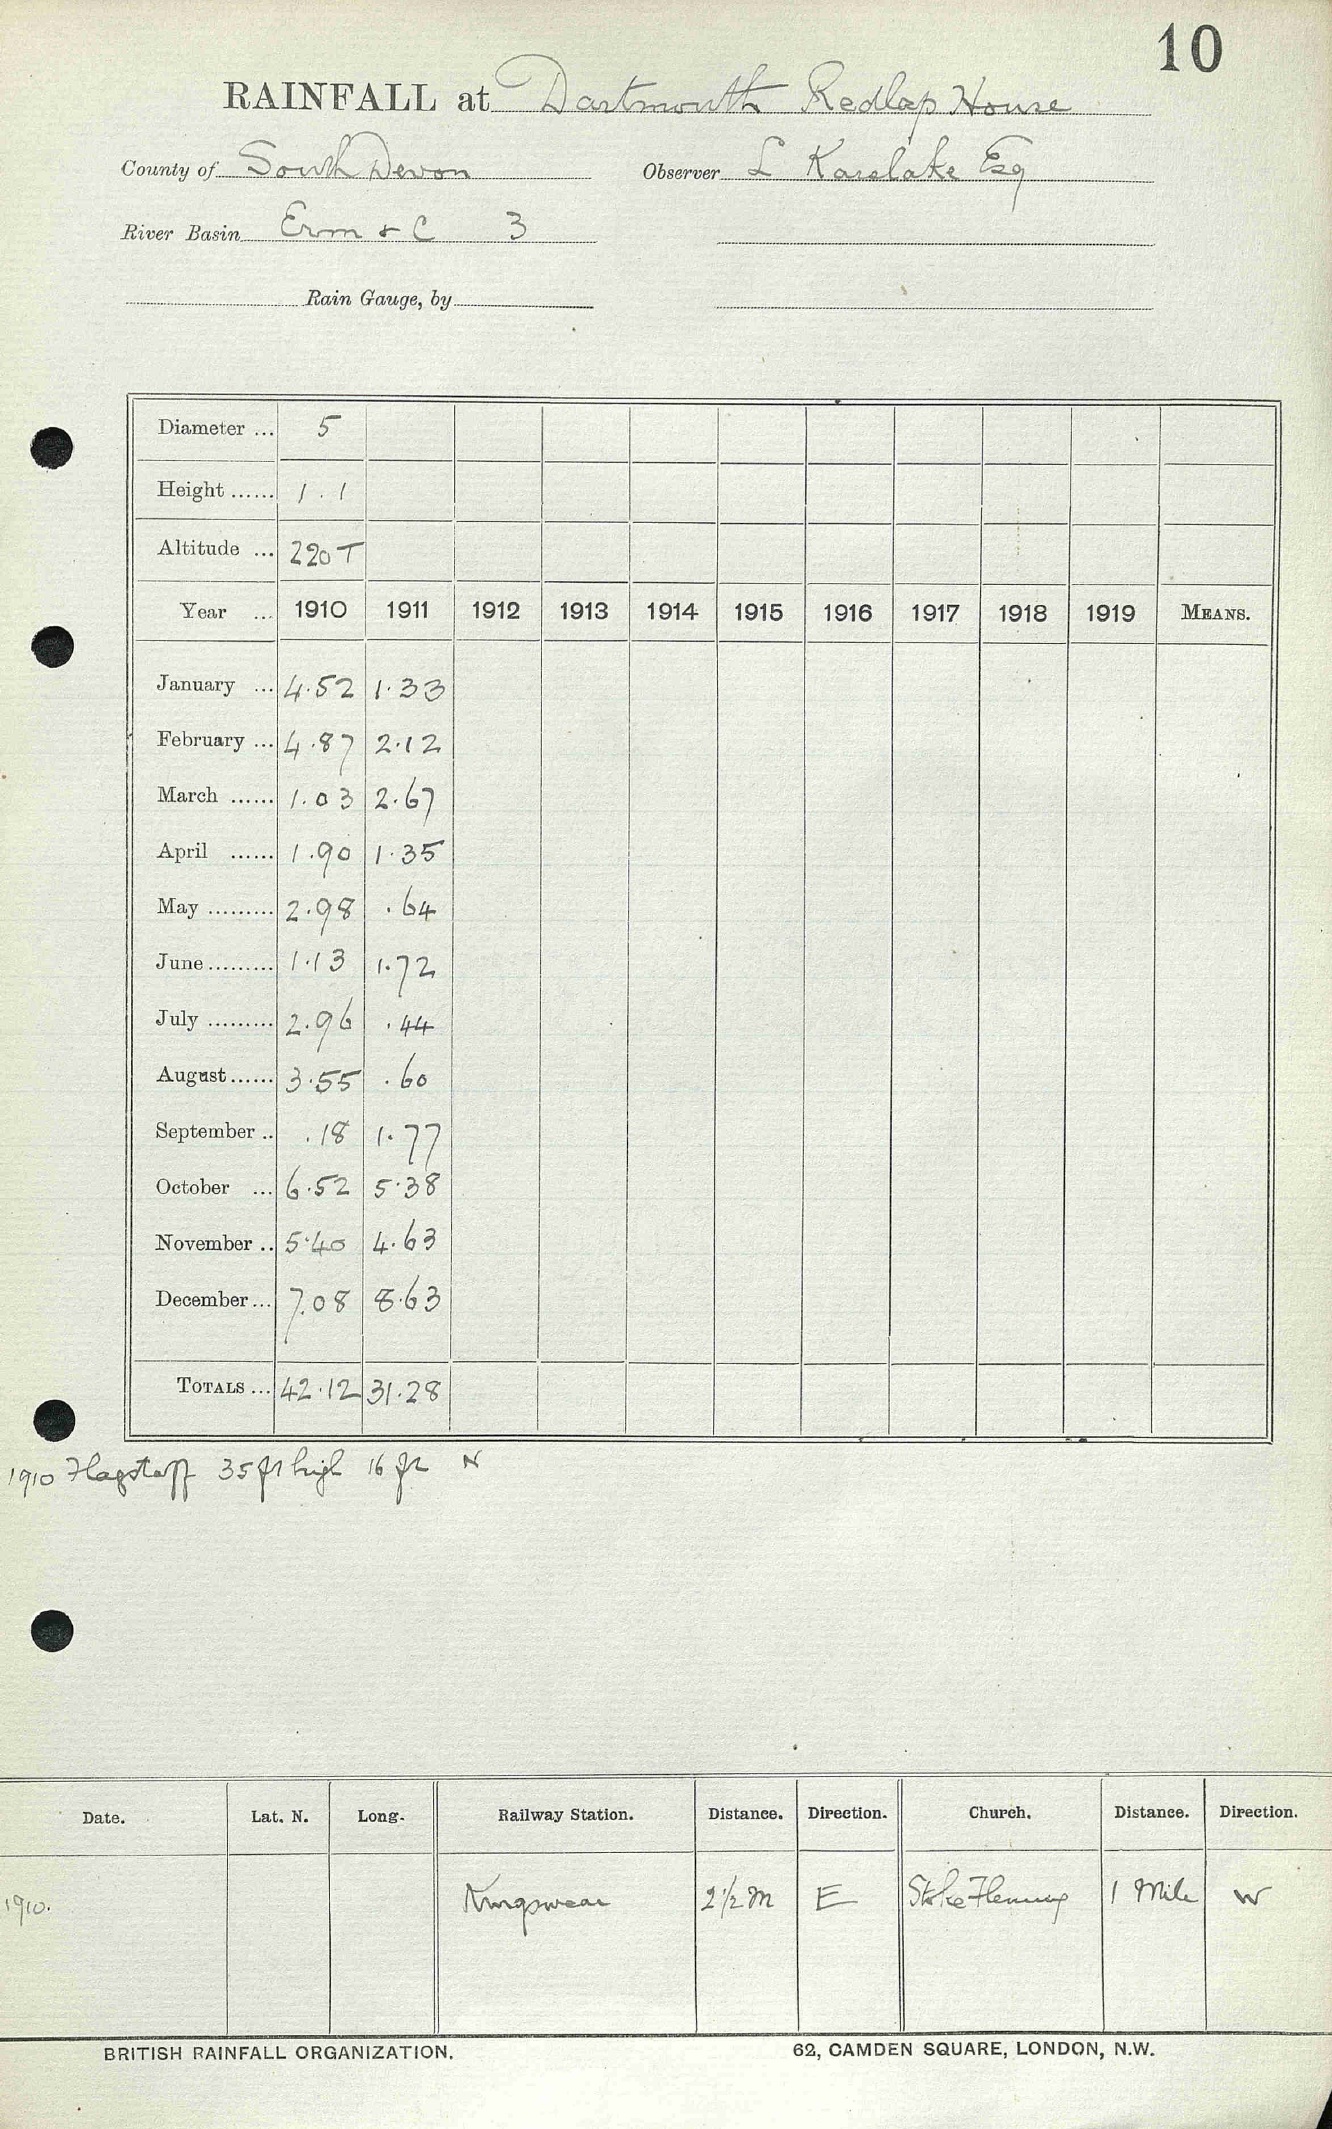 10
RAINFALL at Dartmouth Redlap House
County of South Devon Observer L Karslake Esq
River Basin Erm & C 3
Rain Gauge, by
Diameter ... 5
Height ...... 1.1
Altitude ... 220 T
Year ... 1910 1911 1912 1913 1914 1915 1916 1917 1918 1919 MEANS.
January ... 4.52 1.33
February ... 4.87 2.12
March ...... 1.03 2.67
April ...... 1.90 1.35
May ......... 2.98 .64
June ......... 1.13 1.72
July ......... 2.96 .44
August ...... 3.55 .60
September .. .18 1.77
October ... 6.52 5.38
November .. 5.40 4.63
December ... 7.08 8.63
TOTALS ... 42.12 31.28
1910 Flagstaff 35 ft high 16 ft N
Date. Lat. N. Long. Railway Station. Distance. Direction. Church. Distance. Direction.
1910. Kingswear 2 1/2 M E Stoke Fleming 1 Mile W
BRITISH RAINFALL ORGANIZATION. 62, CAMDEN SQUARE, LONDON, N.W.